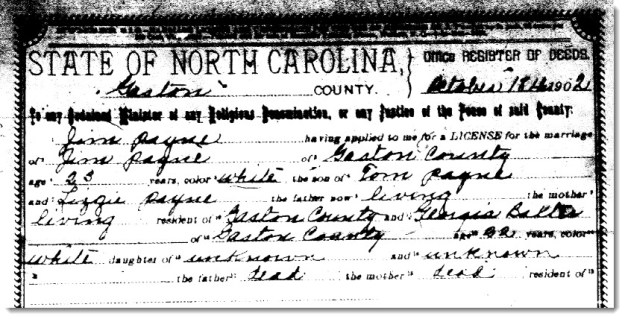 STATE OF NORTH CAROLINA, OFFICE REGISTER OF DEEDS.
Gaston COUNTY. October 18th 1902
To any Ordained Minister of any Religious Denomination, or any Justice of the Peace of said County:
Jim Payne having applied to me for a LICENSE for the marriage
of Jim Payne of Gaston County
age 23 years, color white the son of Tom Payne
and Lizzie Payne the father now living the mother
living resident of Gaston County and Georgia
of Gaston County age 22 years, color
white daughter of unknown and unknown
the father dead the mother dead resident of